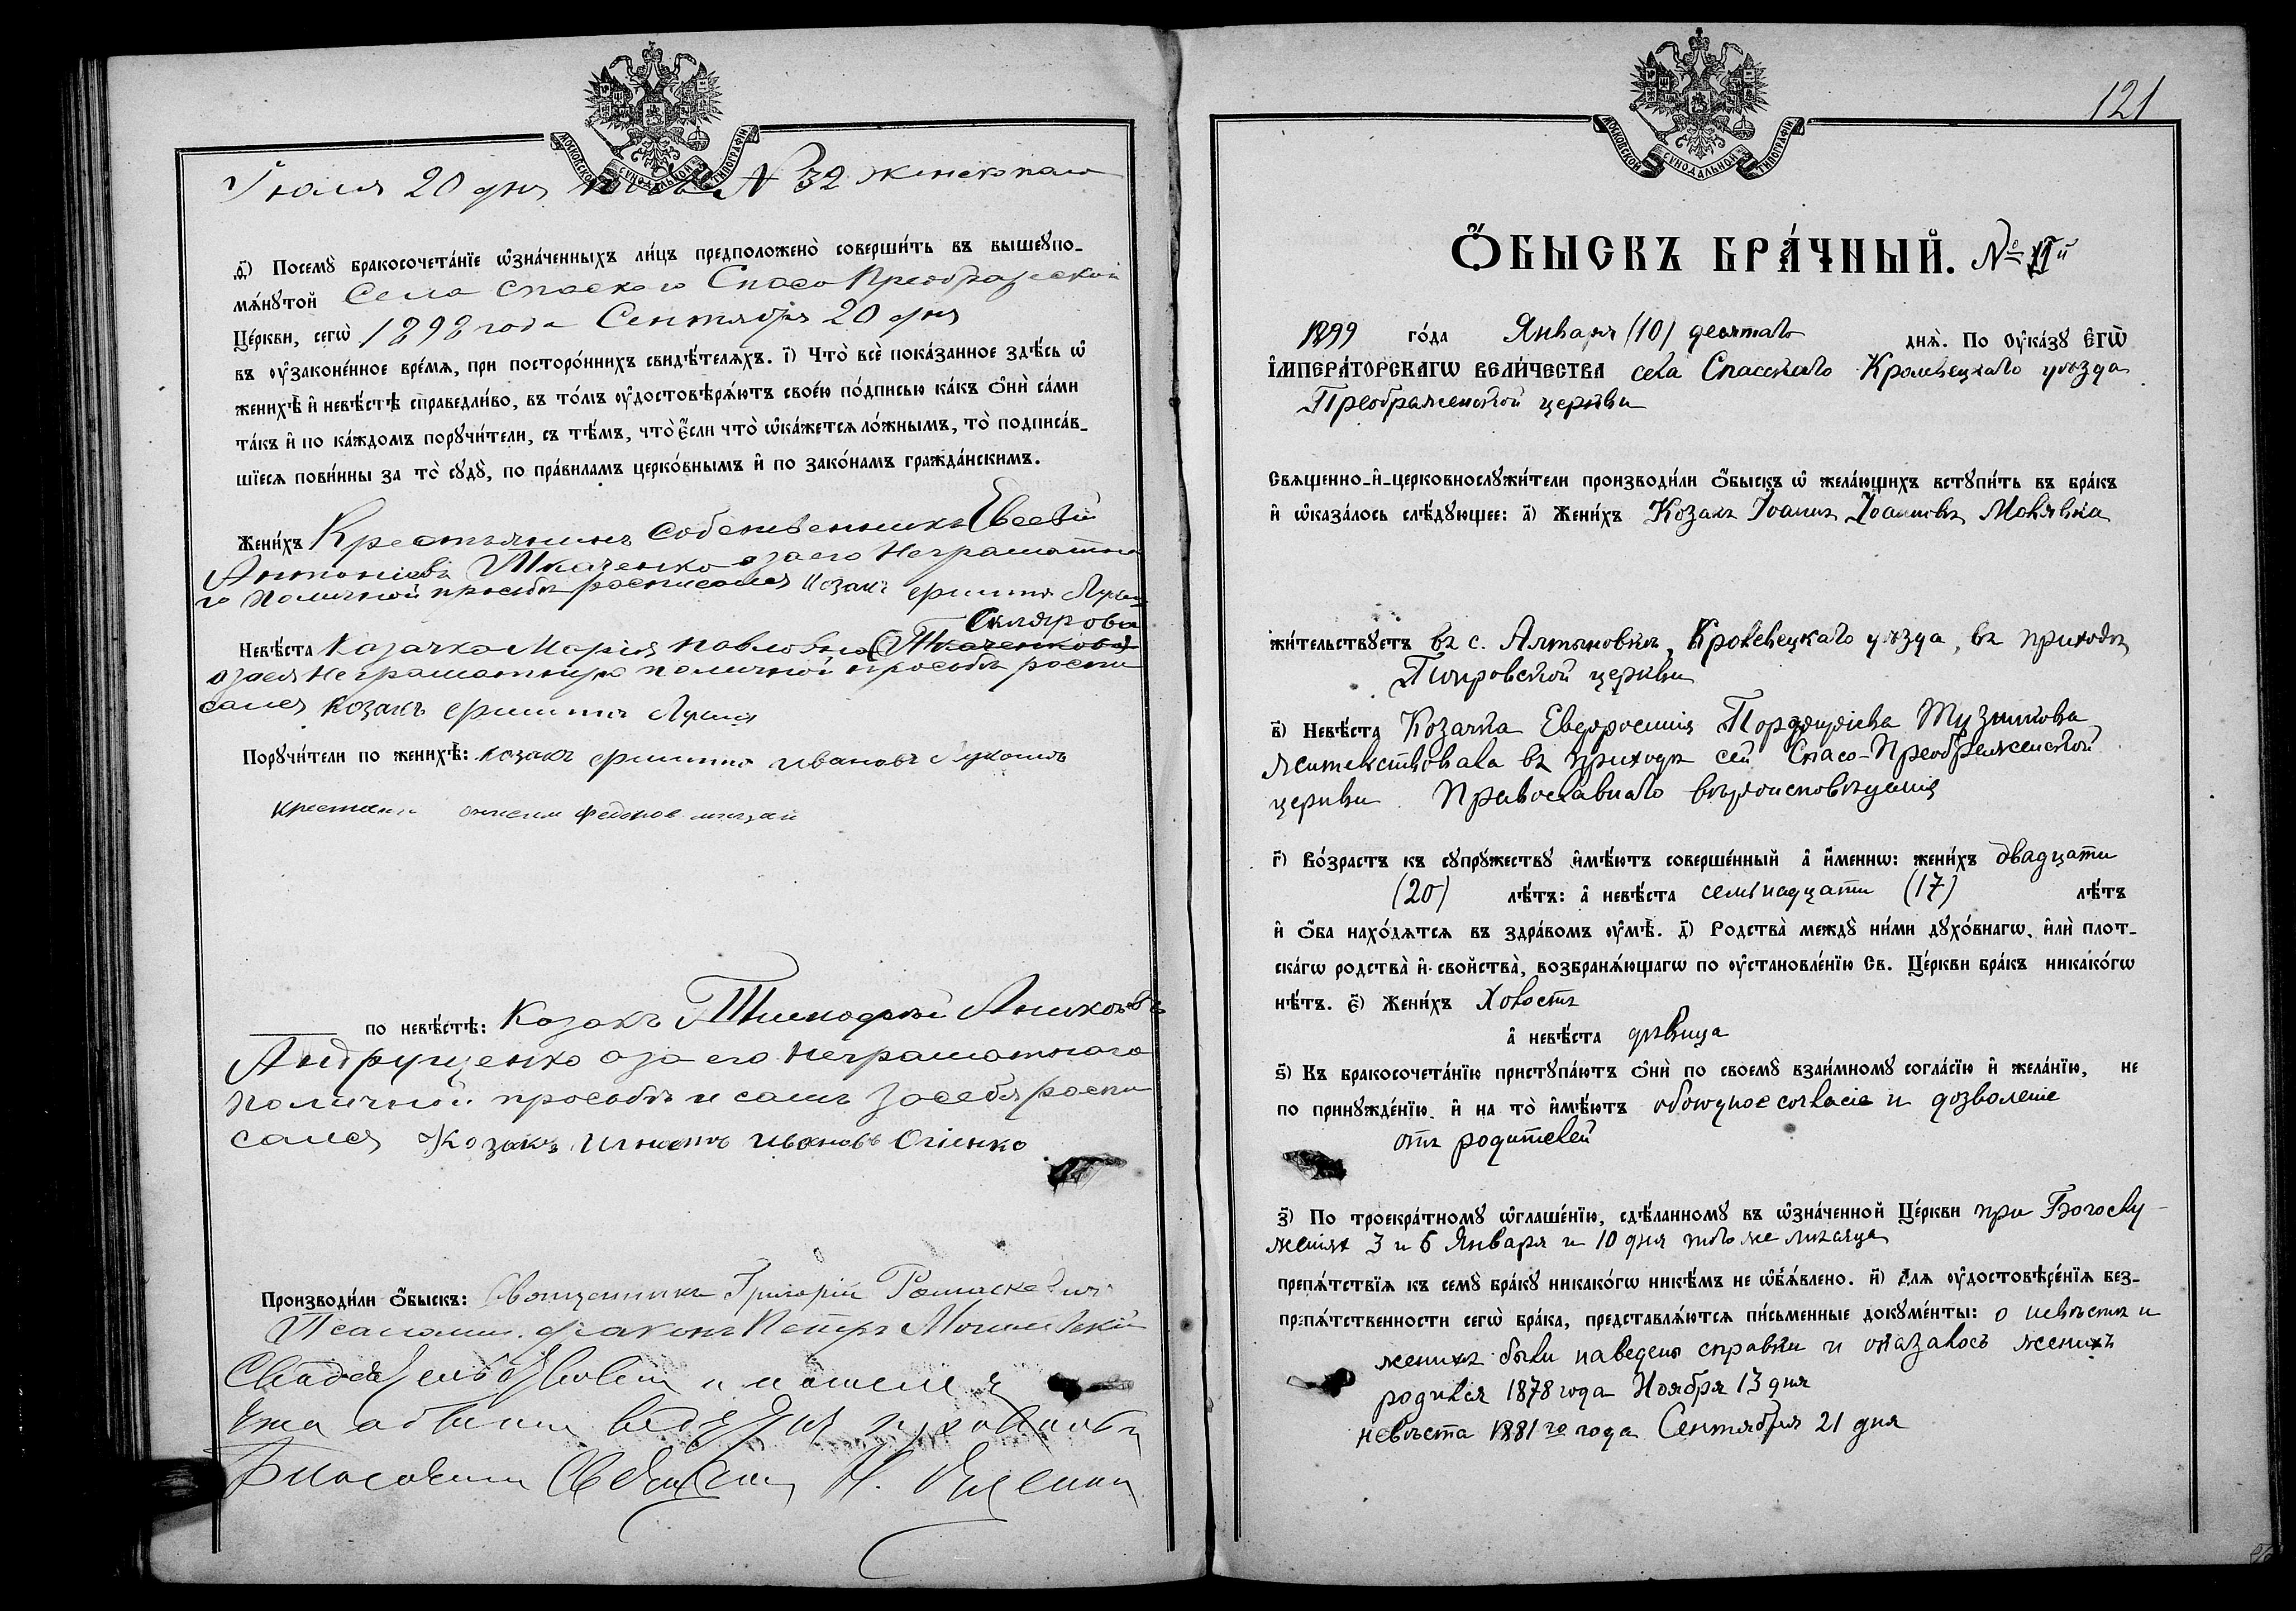 МОСКОВСКОЙ СѴНОДАЛЬНОЙ ТИПОГРАФІИ
Іюля 20 дня № 32 женскаго
д҃і) Посемꙋ̀ бракосочета́нїе ѡ҆зна́ченныхъ ли́цъ предположено̀ соверши́ть въ вышеꙋпо-
мѧ́нꙋтой Села Спаского Спасо Преображеской
Це́ркви, сегѡ̀ 1898 года Сентября 20 дня
въ ᲂу҆зако́ненное вре́мѧ, при посторо́ннихъ свидѣ́телѧхъ. і҃) Что̀ всѐ пока́занное здѣ́сь ѡ҆
женихѣ̀ и҆ невѣ́стѣ справедли́во, въ то́мъ ᲂу҆достовѣрѧ́ютъ свое́ю по́дписью ка́къ ѻ҆нѝ са́ми
та́къ и҆ по ка́ждомъ порꙋчи́тели, съ тѣ́мъ, что̀ є҆́сли что̀ ѡ҆ка́жетсѧ ло́жнымъ, то̀ подписа́в-
шїесѧ пови́нны за то̀ сꙋдꙋ̀, по пра́виламъ церко́внымъ и҆ по зако́намъ гражда́нскимъ.
Жени́хъ Крестьянинъ собственникъ Евсевій
Антоніевъ Ткаченко а за его Неграмотна
го поличной просьбѣ росписался козакъ
Склярова
Невѣ́ста Казачка Марія Павлова Ткаченкова
а за ея Неграмотную поличной просьбѣ роспи
сался Козакъ
Порꙋчи́тели по женихѣ̀: козакъ Ивановъ
Федоров
по невѣ́стѣ: Козакъ Тимофей
Андрущенко а за его неграмотного
поличной просьбѣ и самъ за себя роспи
сался Козакъ Игнатъ Ивановъ Огіенко
Производи́ли ѻ҆́быскъ: Священникъ Григорій Ромаскевич
Псаломщ. діаконъ Петръ
121
МОСКОВСКОЙ СѴНОДАЛЬНОЙ ТИПОГРАФІИ
Ѻ҆́БЫСКЪ БРА́ЧНЫЙ. №
1899 го́да Января (10) десятаго днѧ̀. По ᲂу҆ка́зꙋ Є҆ГѠ̀
І҆МПЕРА́ТОРСКАГѠ ВЕЛИ́ЧЕСТВА села Спасскаго Кролевецкаго уѣзда
Преображенской церкви
Свѧщенно-и҆-церковнослꙋжи́тели производи́ли ѻ҆́быскъ ѡ҆ жела́ющихъ встꙋпи́ть въ бра́къ
и҆ ѡ҆каза́лось слѣ́дꙋющее: а҃) Жени́хъ Козакъ Іоаннъ Іоанновъ Молявка
жи́тельствꙋетъ въ с. Алтыновкѣ, Кролевецкаго уѣзда, въ приходѣ
Покровской церкви
в҃) Невѣ́ста Козачка Евфросинія Порфиріева Тузникова
жительствовала въ приходѣ сей Спасо-Преображенской
церкви Православнаго вѣроисповѣданія
г҃) Во́зрастъ къ сꙋпрꙋ́жествꙋ и҆мѣ́ютъ соверше́нный а҆ и҆́меннѡ: жени́хъ двадцати
(20) лѣ́тъ: а҆ невѣ́ста семнадцати (17) лѣ́тъ
и҆ ѻ҆́ба нахо́дѧтсѧ въ здра́вомъ ᲂу҆мѣ̀. д҃) Родства̀ междꙋ̀ ни́ми дꙋхо́внагѡ, и҆лѝ плот-
ска́гѡ родства̀ и҆ свойства̀, возбранѧ́ющагѡ по ᲂу҆становле́нїю Св. Це́ркви бра́къ никако́гѡ
нѣ́тъ. є҃) Жени́хъ Холостъ
а҆ невѣ́ста дѣвица
ѕ҃) Къ бракосочета́нїю пристꙋпа́ютъ ѻ҆нѝ по своемꙋ̀ взаи́мномꙋ согла́сїю и҆ жела́нїю, не
по принꙋжде́нїю. и҆ на то̀ и҆мѣ́ютъ обоюдное согласіе и дозволеніе
отъ родителей
з҃) По троекра́тномꙋ ѡ҆глаше́нїю, сдѣ́ланномꙋ въ ѡ҆зна́ченной Це́ркви при Богослу-
женіяхъ 3 и 6 Января и 10 дня того же мѣсяца
препѧ́тствїѧ къ семꙋ̀ бра́кꙋ никако́гѡ никѣ́мъ не ѡ҆б̾ѧ́влено. и҃) Длѧ ᲂу҆достовѣре́нїѧ без-
препѧ́тственности сегѡ̀ бра́ка, представлѧ́ютсѧ пи́сьменные докꙋме́нты: о невѣстѣ и
женихѣ были наведены справки и оказалось женихъ
родился 1878 года Ноября 13 дня
невѣста 1881го года Сентября 21 дня